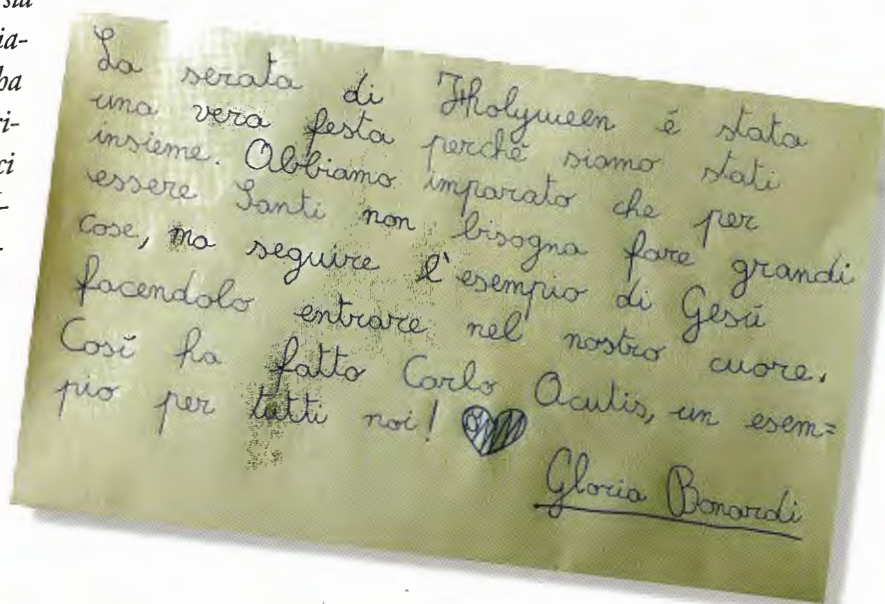 sta
ia-
ba
ri-
ci
La serata di Hholyween é stata
una vera festa perché siamo stati
insieme. Abbiamo imparato che per
essere Santi non bisogna fare grandi
cose, ma seguire l'esempio di Gesú
facendolo entrare nel nostro cuore.
Cosí ha fatto Carlo Acutis, un esem=
pio per tutti noi!
Gloria Bonardi